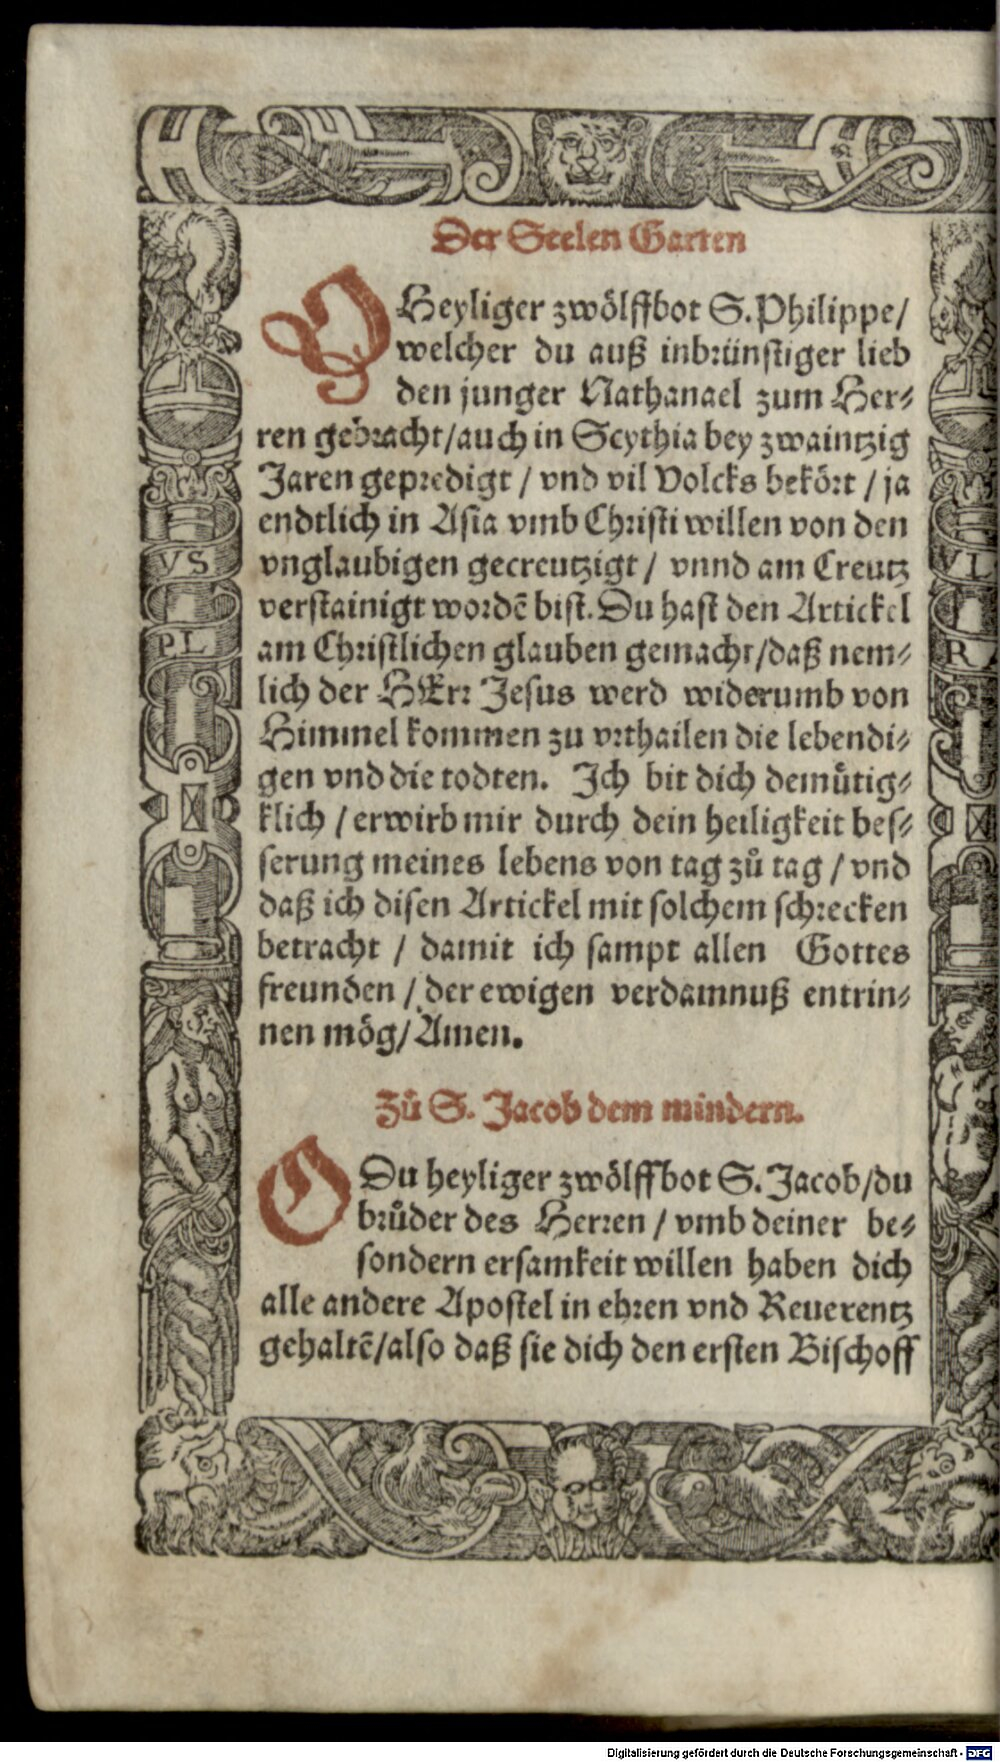 Der Seelen Garten
O Heyliger zwölffbot S. Philippe/
welcher du auß inbrünstiger lieb
den junger Nathanael zum Her⸗
ren gebracht/auch in Scythia bey zwaintzig
Jaren gepredigt / vnd vil Volcks bekört / ja
endtlich in Asia vmb Christi willen von den
vnglaubigen gecreutzigt / vnnd am Creutz
verstainigt wordē bist. Du hast den Artickel
am Christlichen glauben gemacht/daß nem⸗
lich der HErr Jesus werd widerumb von
Himmel kommen zu vrthailen die lebendi⸗
gen vnd die todten. Ich bit dich demütig⸗
klich / erwirb mir durch dein heiligkeit bes⸗
serung meines lebens von tag zů tag / vnd
daß ich disen Artickel mit solchem schrecken
betracht / damit ich sampt allen Gottes
freunden / der ewigen verdamnuß entrin⸗
nen mög/Amen.
Zů S. Jacob dem mindern.
O Du heyliger zwölffbot S. Jacob/du
brůder des Herren / vmb deiner be⸗
sondern ersamkeit willen haben dich
alle andere Apostel in ehren vnd Reuerentz
gehaltē/also daß sie dich den ersten Bischoff
VS
PL
VL
R
Digitalisierung gefördert durch die Deutsche Forschungsgemeinschaft - DFG